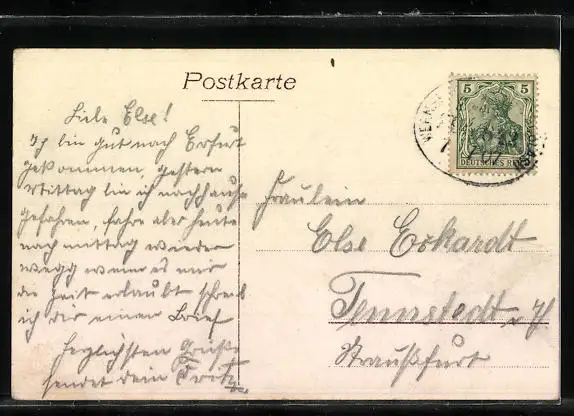 Postkarte
Liebe Else!
Ich bin gut nach Erfurt
gekommen, gestern
Mittag bin ich nach hause
gefahren, fahre aber heute
nach mittag wieder
wegg wenn es mir
die Zeit erlaubt schreib
ich dir einen Brief
herzlichsten Grüße
sendet dein Fritz
5 5
DEUTSCHES REICH
Fräulein
Else Eckardt
Tennstedt
Straußfurt